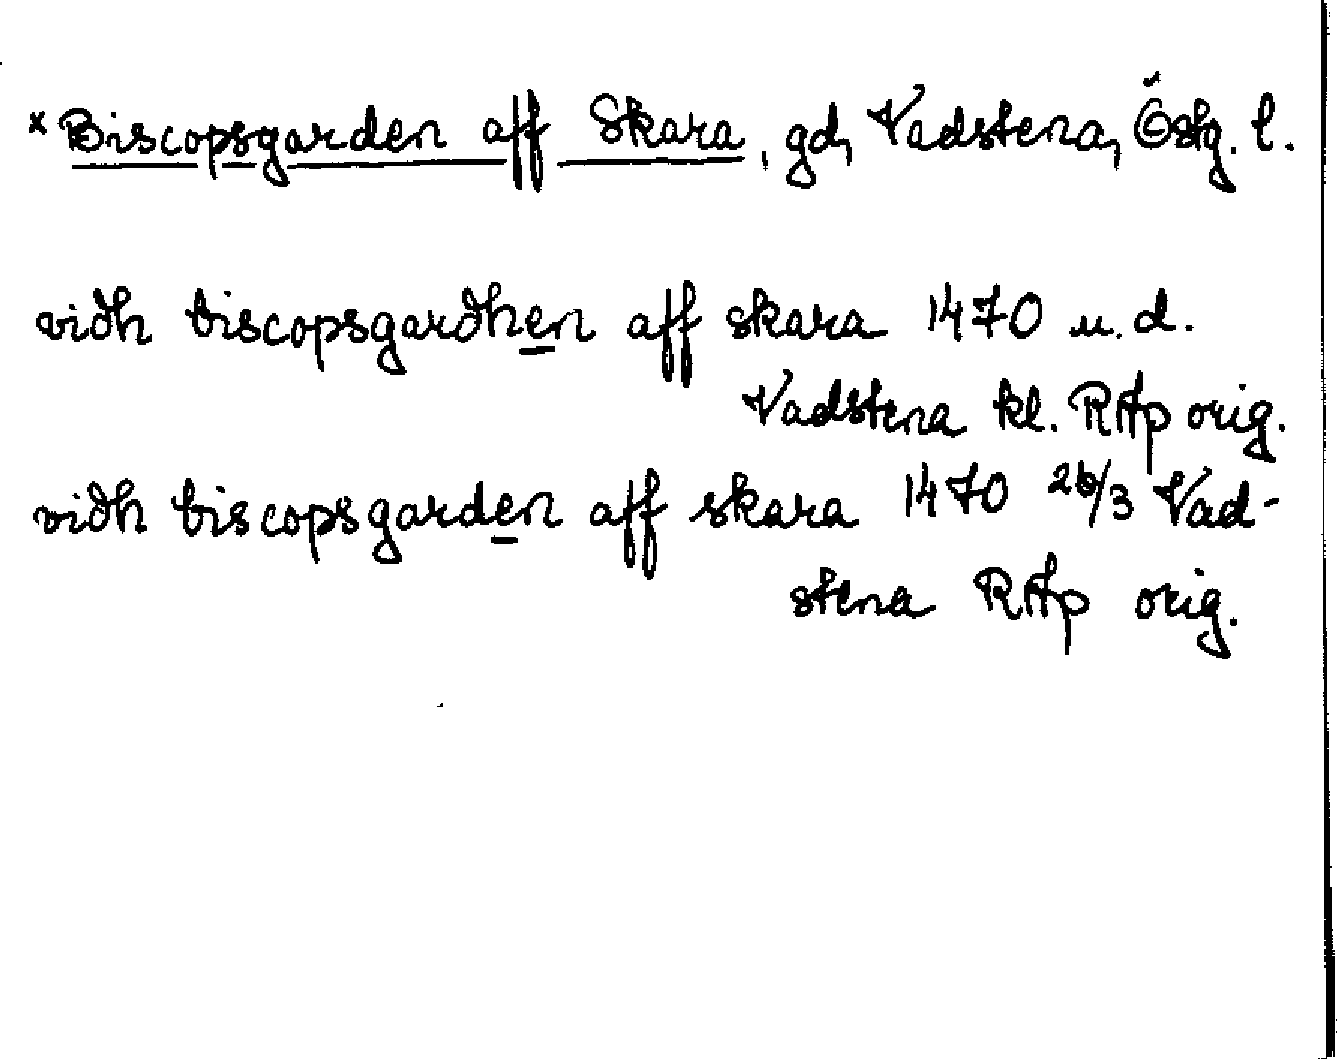 × Biscopsgarden aff Skara, gd, Vadstena, Östg. l.
vidh biscopsgardhen aff skara 1470 u.d.
Vadstena kl. RAp orig.
vidh biscopsgarden aff skara 1470 26/3 Vad-
stena RAp orig.